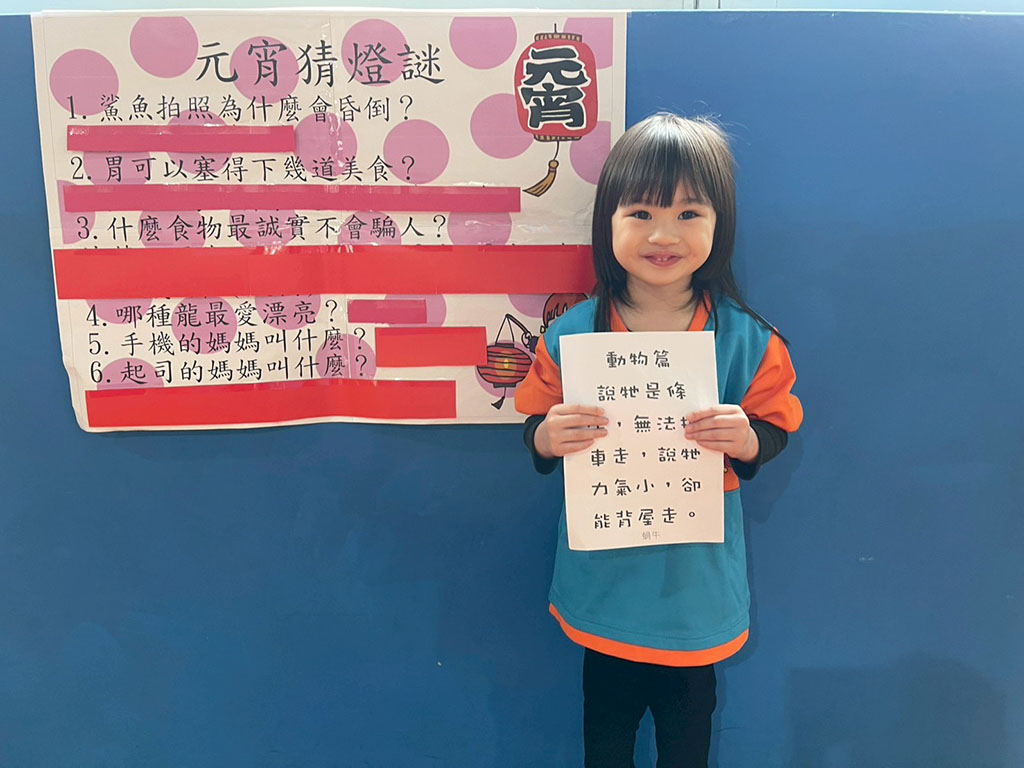 元宵猜燈謎
元宵
1. 鯊魚拍照為什麼會昏倒？
2. 胃可以塞得下幾道美食？
3. 什麼食物最誠實不會騙人？
4. 哪種龍最愛漂亮？
5. 手機的媽媽叫什麼？
6. 起司的媽媽叫什麼？
動物篇
說牠是條
，無法
車走，說牠
力氣小，卻
能背屋走。
蝸牛